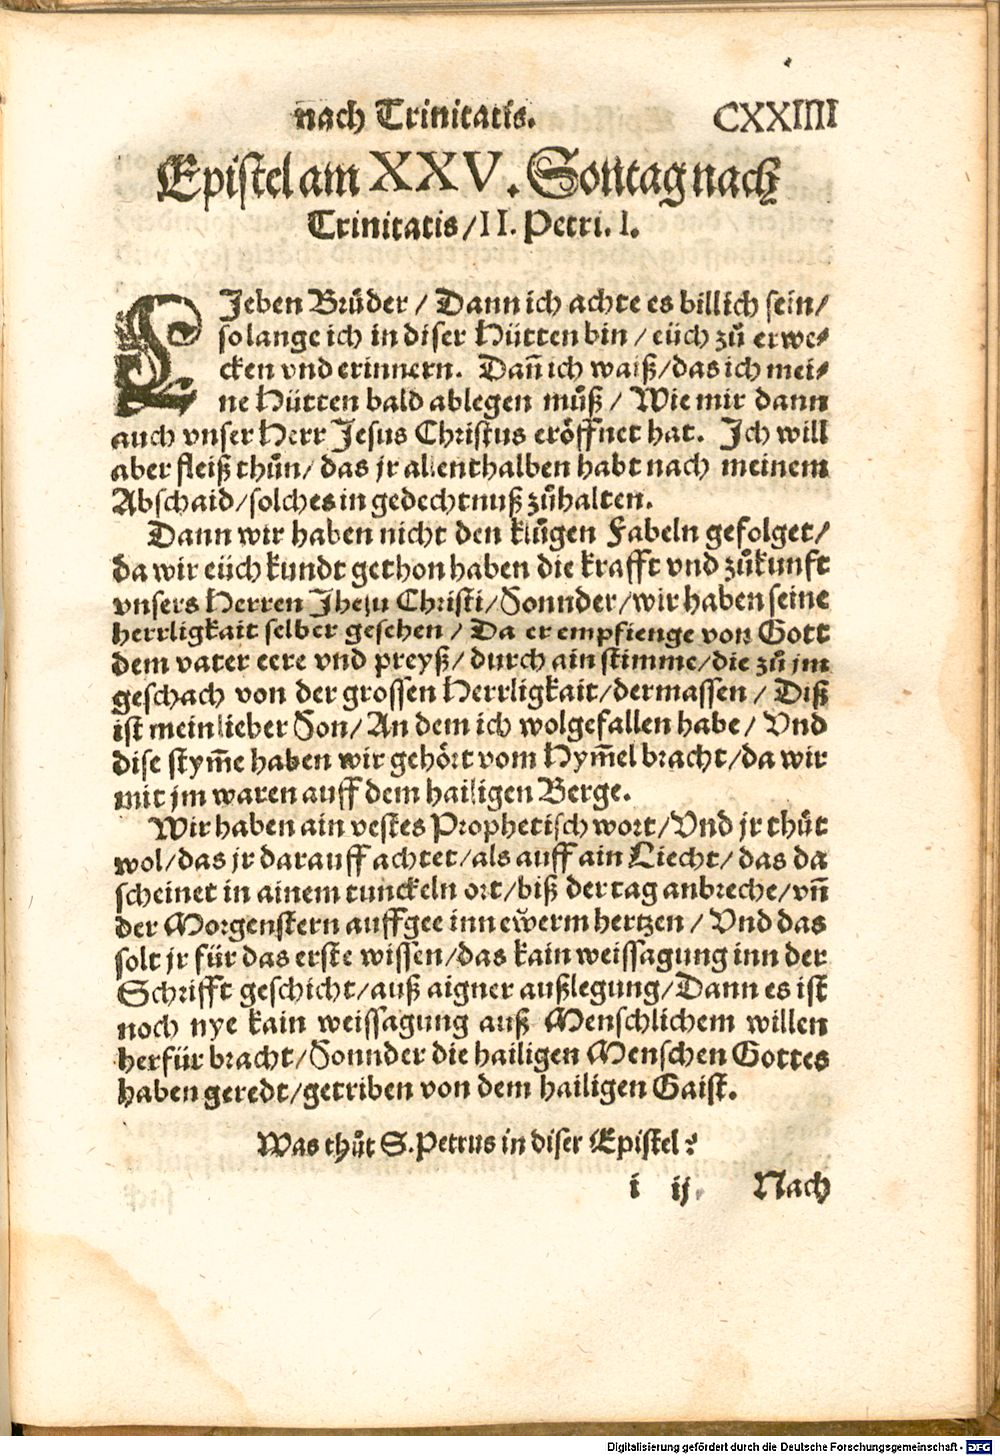 nach Trinitatis. CXXIIII
Epistel am XXV. Sontag nach
Trinitatis / II. Petri. I.
LJeben Brüder / Dann ich achte es billich sein /
so lange ich in diser Hütten bin / eüch zů erwe⸗
cken vnd erinnern. Dañ ich waiß / das ich mei⸗
ne Hütten bald ablegen můß / Wie mir dann
auch vnser Herr Jesus Christus eröffnet hat. Ich will
aber fleiß thůn / das jr allenthalben habt nach meinem
Abschaid / solches in gedechtnuß zůhalten.
Dann wir haben nicht den klůgen Fabeln gefolget /
da wir eüch kundt gethon haben die krafft vnd zůkunft
vnsers Herren Jhesu Christi / Sonnder / wir haben seine
herrligkait selber gesehen / Da er empfienge von Gott
dem vater eere vnd preyß / durch ain stimme / die zů jm
geschach von der grossen Herrligkait / dermassen / Diß
ist mein lieber Son / An dem ich wolgefallen habe / Vnd
dise stym̃e haben wir gehört vom Hym̃el bracht / da wir
mit jm waren auff dem hailigen Berge.
Wir haben ain vestes Prophetisch wort / Vnd jr thůt
wol / das jr darauff achtet / als auff ain Liecht / das da
scheinet in ainem tunckeln ort / biß der tag anbreche / vñ
der Morgenstern auffgee inn ewͤerm hertzen / Vnd das
solt jr für das erste wissen / das kain weissagung inn der
Schrifft geschicht / auß aigner außlegung / Dann es ist
noch nye kain weissagung auß Menschlichem willen
herfür bracht / Sonnder die hailigen Menschen Gottes
haben geredt / getriben von dem hailigen Gaist.
Was thůt S. Petrus in diser Epistel?
i ij. Nach
Digitalisierung gefördert durch die Deutsche Forschungsgemeinschaft - DFG